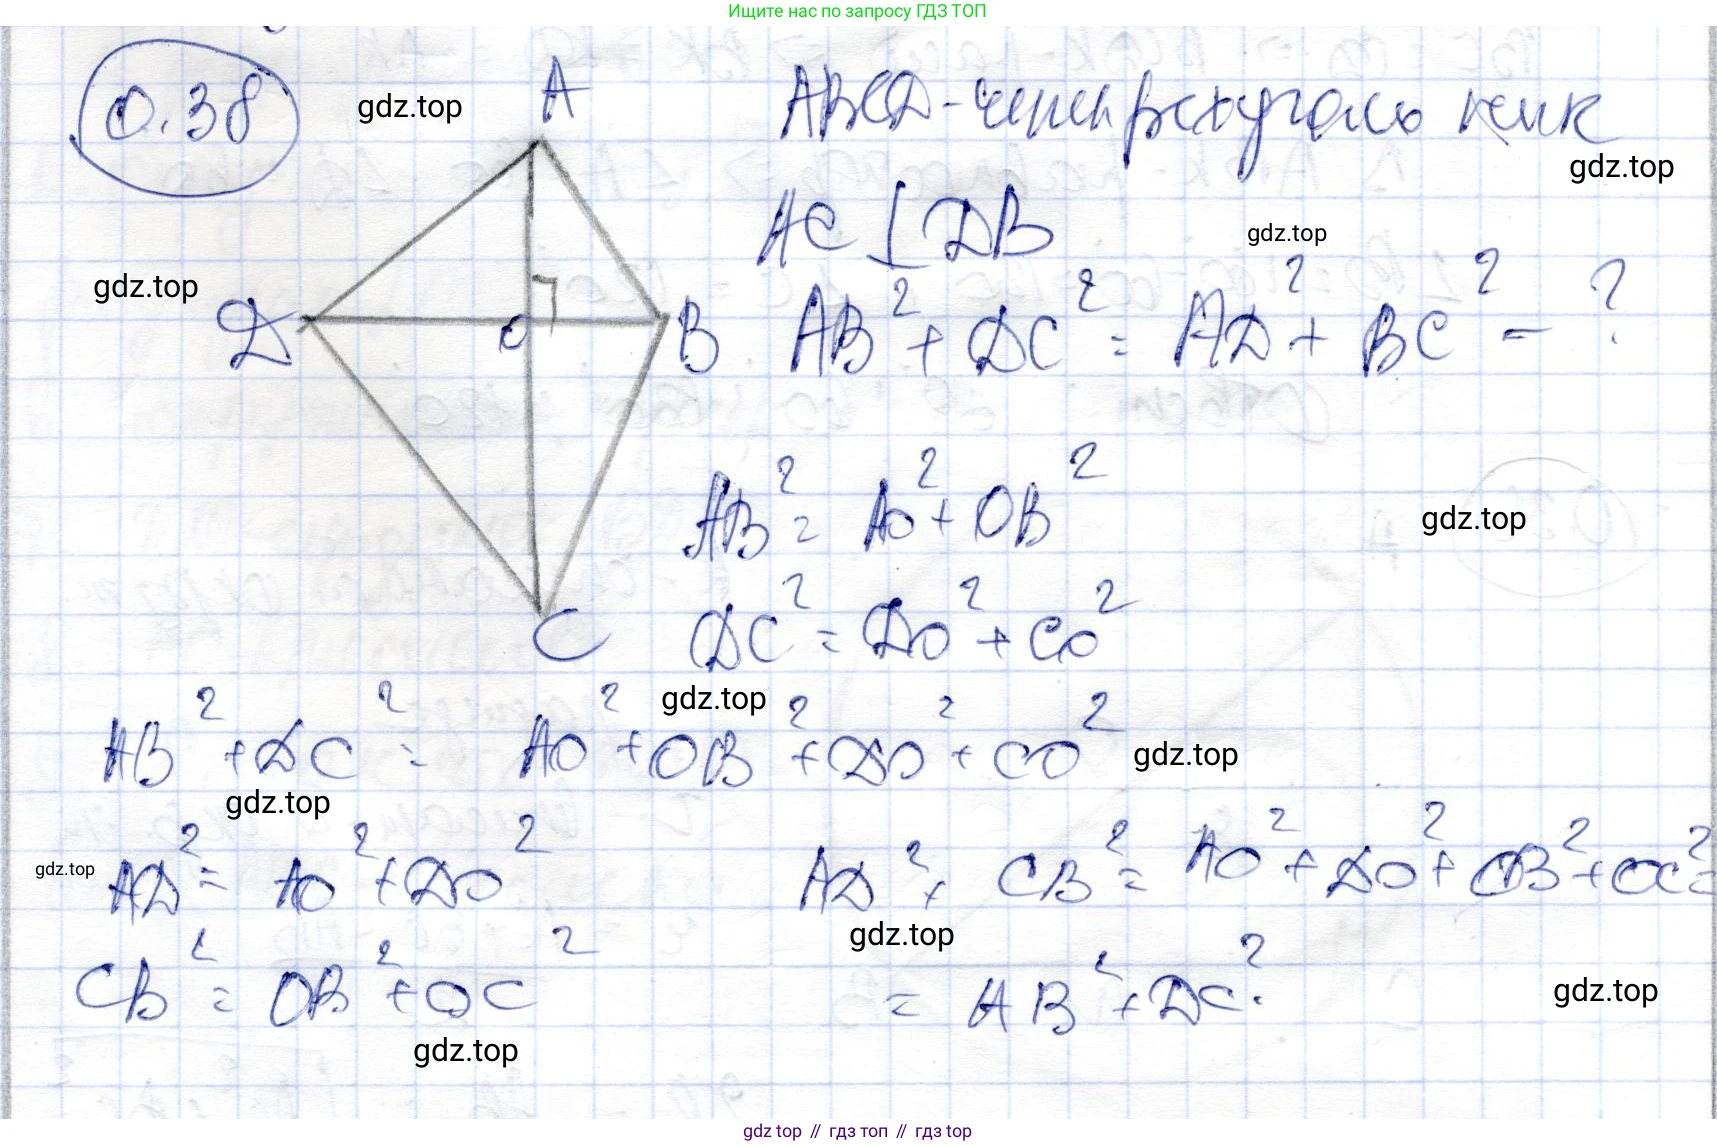 Ищите нас по запросу ГДЗ ТОП
0.38
gdz.top
A
ABCD - четырёхугольник
gdz.top
AC ⊥ DB
gdz.top
gdz.top
D
O
B
AB² + DC² = AD² + BC² - ?
AB² = AO² + OB²
gdz.top
C
DC² = DO² + CO²
gdz.top
AB² + DC² = AO² + OB² + DO² + CO²
gdz.top
gdz.top
gdz.top
AD² = AO² + DO²
AD² + CB² = AO² + DO² + OB² + OC² =
gdz.top
CB² = OB² + OC²
= AB² + DC².
gdz.top
gdz.top
gdz top // гдз топ // gdz top